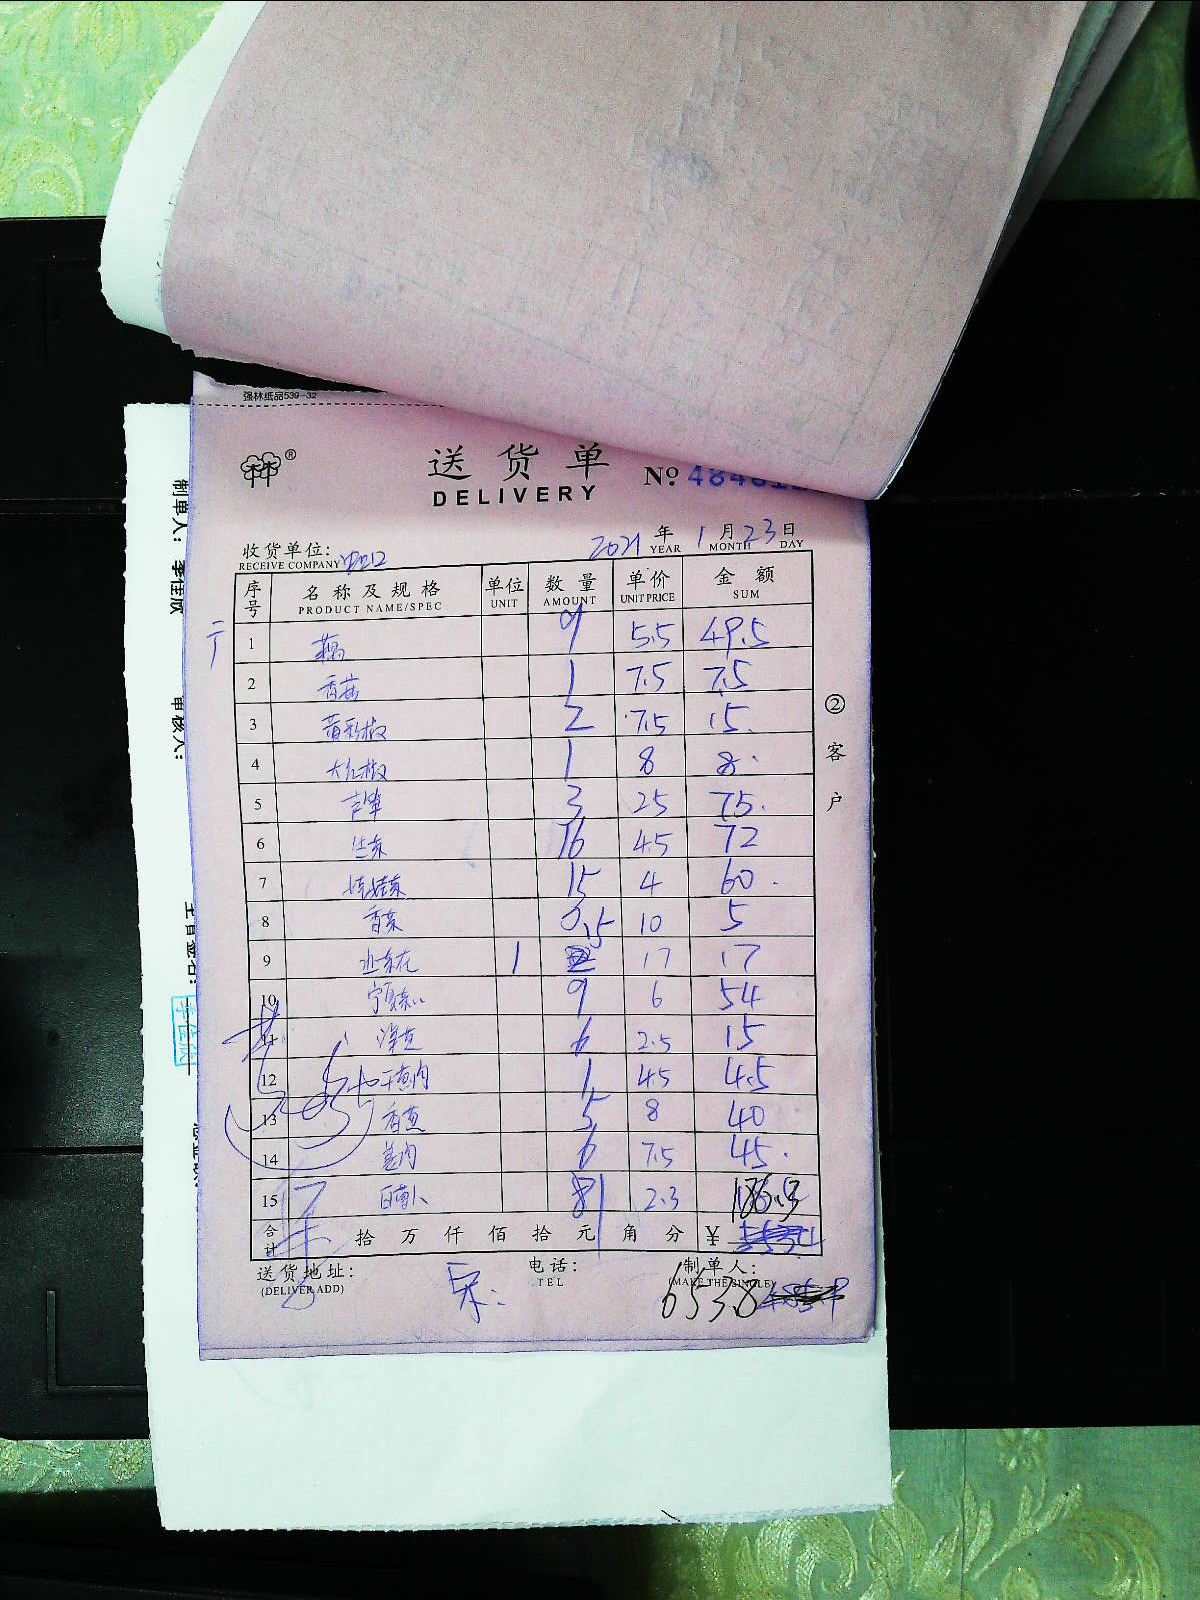 强林纸品539-32
送货单
DELIVERY
№ 48481
收货单位:
RECEIVE COMPANY
2021年1月23日
YEAR MONTH DAY
序号 名称及规格 单位 数量 单价 金额
PRODUCT NAME/SPEC UNIT AMOUNT UNIT PRICE SUM
1 藕 9 5.5 49.5
2 香菇 1 7.5 7.5
3 青彩椒 2 7.5 15.
4 大红椒 1 8 8.
5 芦笋 3 25 75.
6 16 4.5 72
7 娃娃菜 15 4 60.
8 香菜 0.5 10 5
9 1 17 17
10 宁夏菜心 9 6 54
11 洋葱 6 2.5 15
12 干葱肉 1 4.5 4.5
13 香葱 5 8 40
14 姜肉 6 7.5 45.
15 白萝卜 81 2.3 186.3
合计 拾万仟佰拾元角分 ¥
送货地址: 电话: 制单人:
(DELIVER ADD) TEL (MAKE THE SINGLE)
653.8
②客户
制单人: 李佳欣
审核人:
李佳欣